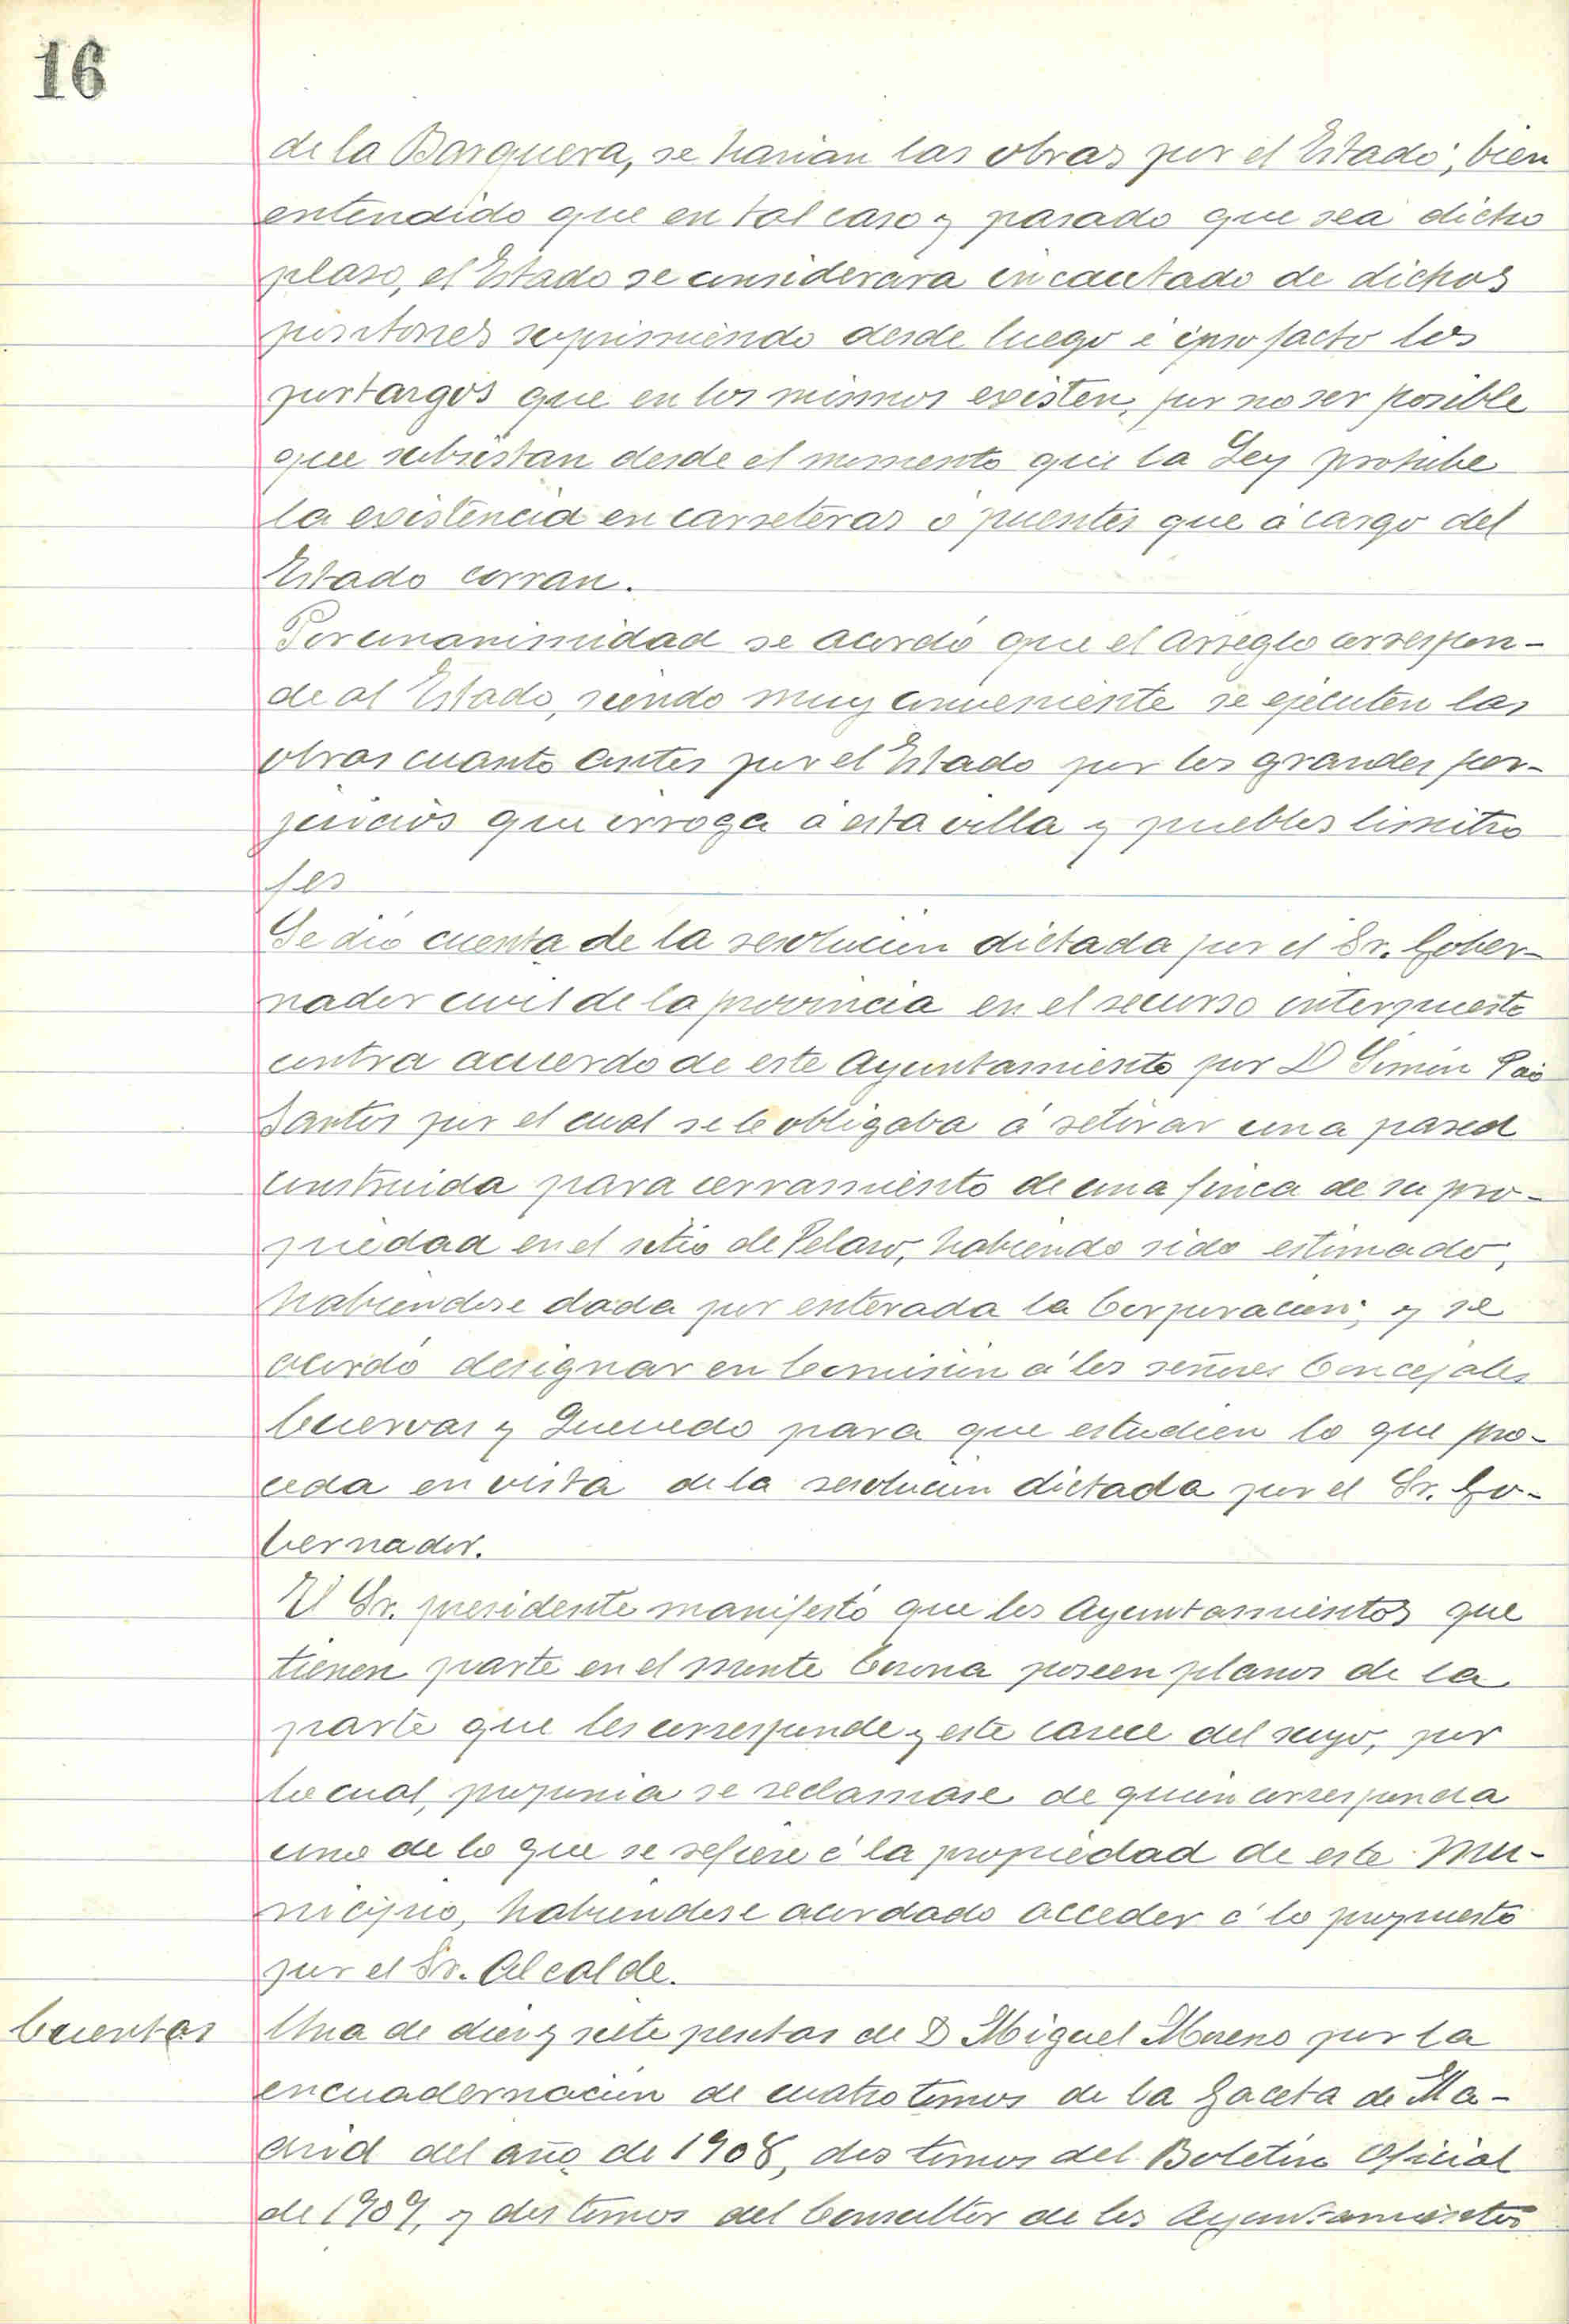 16
de la Barquera, se harian las obras por el Estado; bien
entendido que en tal caso y pasado que sea dicho
plaso, el Estado se considerara incautado de dichos
suprimiendo desde luego é ipso facto los
portazgos que en los mismos existen, por no ser posible
que subsistan desde el momento que la Ley prohibe
la existencia en carreteras ó puentes que á cargo del
Estado corran.
Por unanimidad se acordó que el arreglo correspon-
de al Estado, siendo muy conveniente se ejecuten las
obras cuanto antes por el Estado por los grandes per-
juicios que irroga á esta villa y pueblos limitro
fes
Se dió cuenta de la resolucion dictada por el Sr. Gober-
nador civil de la provincia en el recurso interpuesto
contra acuerdo de este Ayuntamiento por D Simon
Santos por el cual se le obligaba á retirar una pared
construida para cerramiento de una finca de su pro-
piedad en el sitio de habiendo sido estimado,
habiendose dada por enterada la Corporacion; y se
acordó designar en Comision á los señores Concejales
Cuervas y Quevedo para que estudien lo que pro-
ceda en vista de la resolucion dictada por el Sr. Go-
bernador.
El Sr. presidente manifestó que los Ayuntamientos que
tienen parte en el monte Corona poseen planos de la
parte que les corresponde y este carece del suyo, por
lo cual, proponia se reclamase de quien corresponda
uno de lo que se refiere á la propiedad de este Mu-
nicipio, habiendose acordado acceder á lo propuesto
por el Sr. Alcalde.
Cuentas
Una de diez y siete pesetas de D Miguel Moreno por la
encuadernacion de cuatro tomos de la Gaceta de Ma-
drid del año de 1908, dos tomos del Boletin Oficial
de 1909, y dos tomos del Consultor de los Ayuntamientos